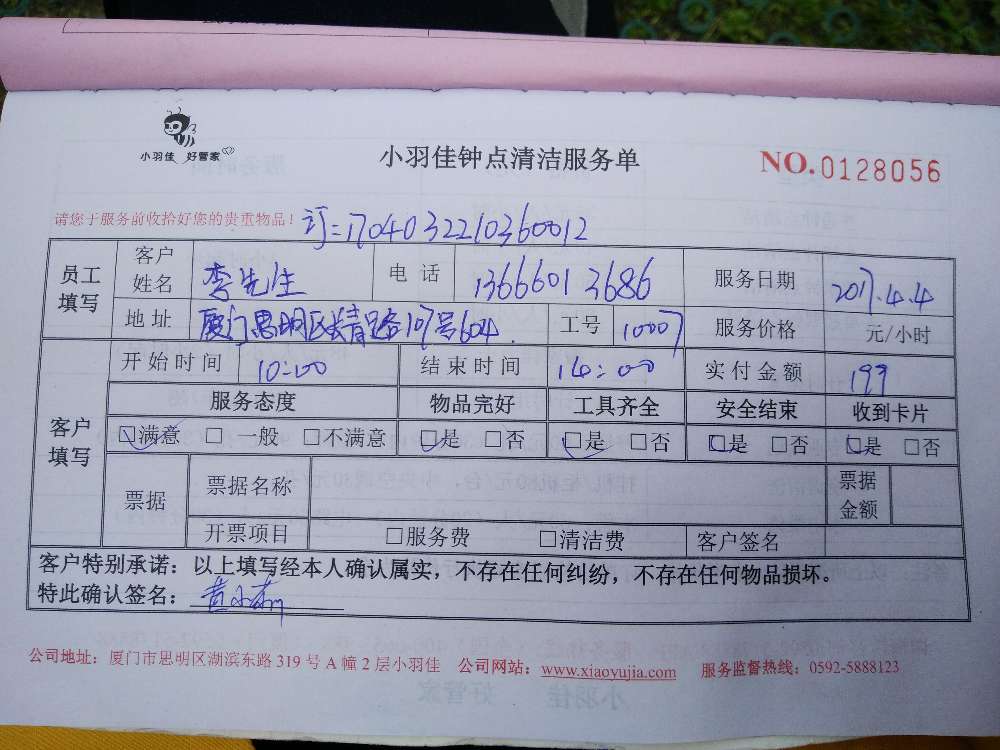 小羽佳 好管家
小羽佳钟点清洁服务单
NO.0128056
请您于服务前收拾好您的贵重物品！ 订=1704032210360012
员工填写 客户姓名 李先生 电话 13666013686 服务日期 2017.4.4
地址 厦门思明区长青路107号604 工号 10007 服务价格 元/小时
客户填写 开始时间 10:00 结束时间 14:00 实付金额 199
服务态度 物品完好 工具齐全 安全结束 收到卡片
☑满意 □一般 □不满意 ☑是 □否 ☑是 □否 ☑是 □否 ☑是 □否
票据 票据名称 票据金额
开票项目 □服务费 □清洁费 客户签名
客户特别承诺：以上填写经本人确认属实，不存在任何纠纷，不存在任何物品损坏。
特此确认签名：
公司地址：厦门市思明区湖滨东路 319 号 A 幢 2 层小羽佳 公司网站：www.xiaoyujia.com 服务监督热线：0592-5888123